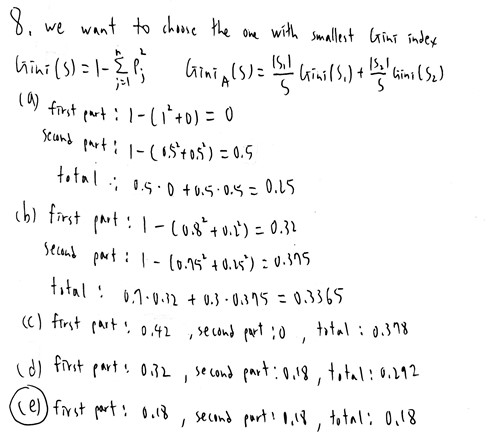 8. we want to choose the one with smallest Gini index
Gini(S) = 1 - Σ_{j=1}^{n} P_j^2   Gini_A(S) = |S_1|/S Gini(S_1) + |S_2|/S Gini(S_2)
(a) first part : 1 - (1² + 0) = 0
second part : 1 - (0.5² + 0.5²) = 0.5
total : 0.5 · 0 + 0.5 · 0.5 = 0.25
(b) first part : 1 - (0.8² + 0.2²) = 0.32
second part : 1 - (0.75² + 0.25²) = 0.375
total : 0.7 · 0.32 + 0.3 · 0.375 = 0.3365
(c) first part : 0.42 , second part : 0 , total : 0.378
(d) first part : 0.32 , second part : 0.18 , total : 0.292
(e) first part : 0.18 , second part : 0.18 , total : 0.18